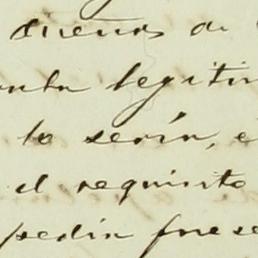 dueños de
legitim
lo serín, e
el requisito
pedia fuese